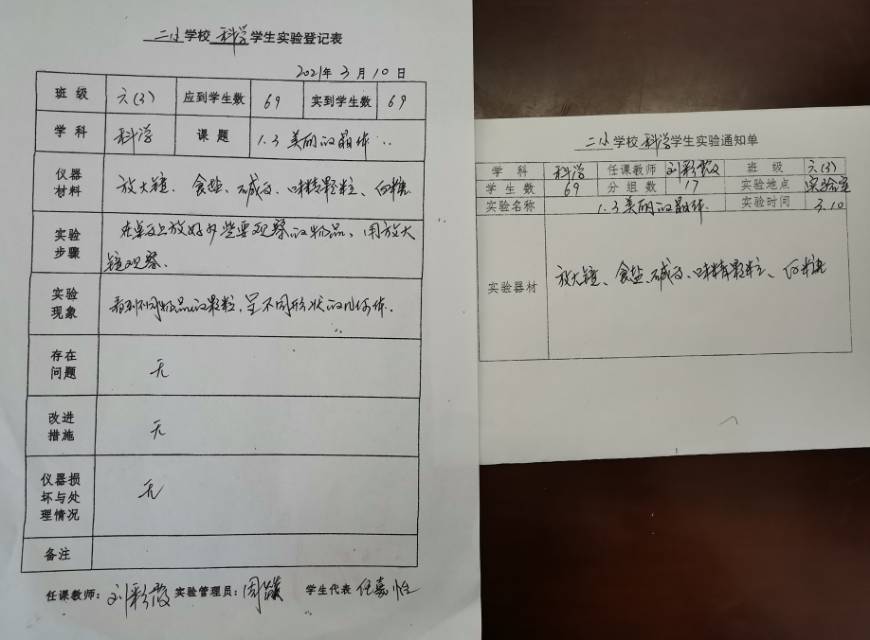 二小学校科学学生实验登记表
2021年3月10日
班级 六(3) 应到学生数 69 实到学生数 69
学科 科学 课题 1.3 美丽的晶体
仪器材料 放大镜、食盐、碱面、味精颗粒、白糖
实验步骤 在桌子上放好那些要观察的物品、用放大
镜观察.
实验现象 看到不同物品的颗粒,呈不同形状的几何体.
存在问题 无
改进措施 无
仪器损坏与处理情况 无
备注
任课教师:刘彩霞 实验管理员:周 学生代表 任嘉怡
二小学校科学学生实验通知单
学科 科学 任课教师 刘彩霞 班级 六(3)
学生数 69 分组数 17 实验地点 实验室
实验名称 1.3 美丽的晶体. 实验时间 3.10
实验器材 放大镜、食盐、碱面、味精颗粒、白糖